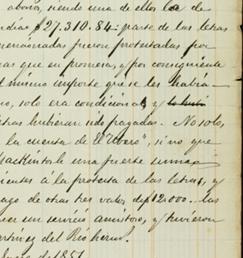 abono, siendo una de ellos la de
$27.310.84 - parte de las letras
mencionadas fueron protestadas por
que en primera, y por consiguiente
mismo importe que se les había
solo era condicional, y
hubieran sido pagadas. No solo
la cuenta de "Ubero", si no que
Mackintosh una fuerte suma
á la protesta de las letras, y
pago de otras tres valor de $12000. las
un servicio amistoso, y tuvieron
Martinez del Rio herm.
de 1851